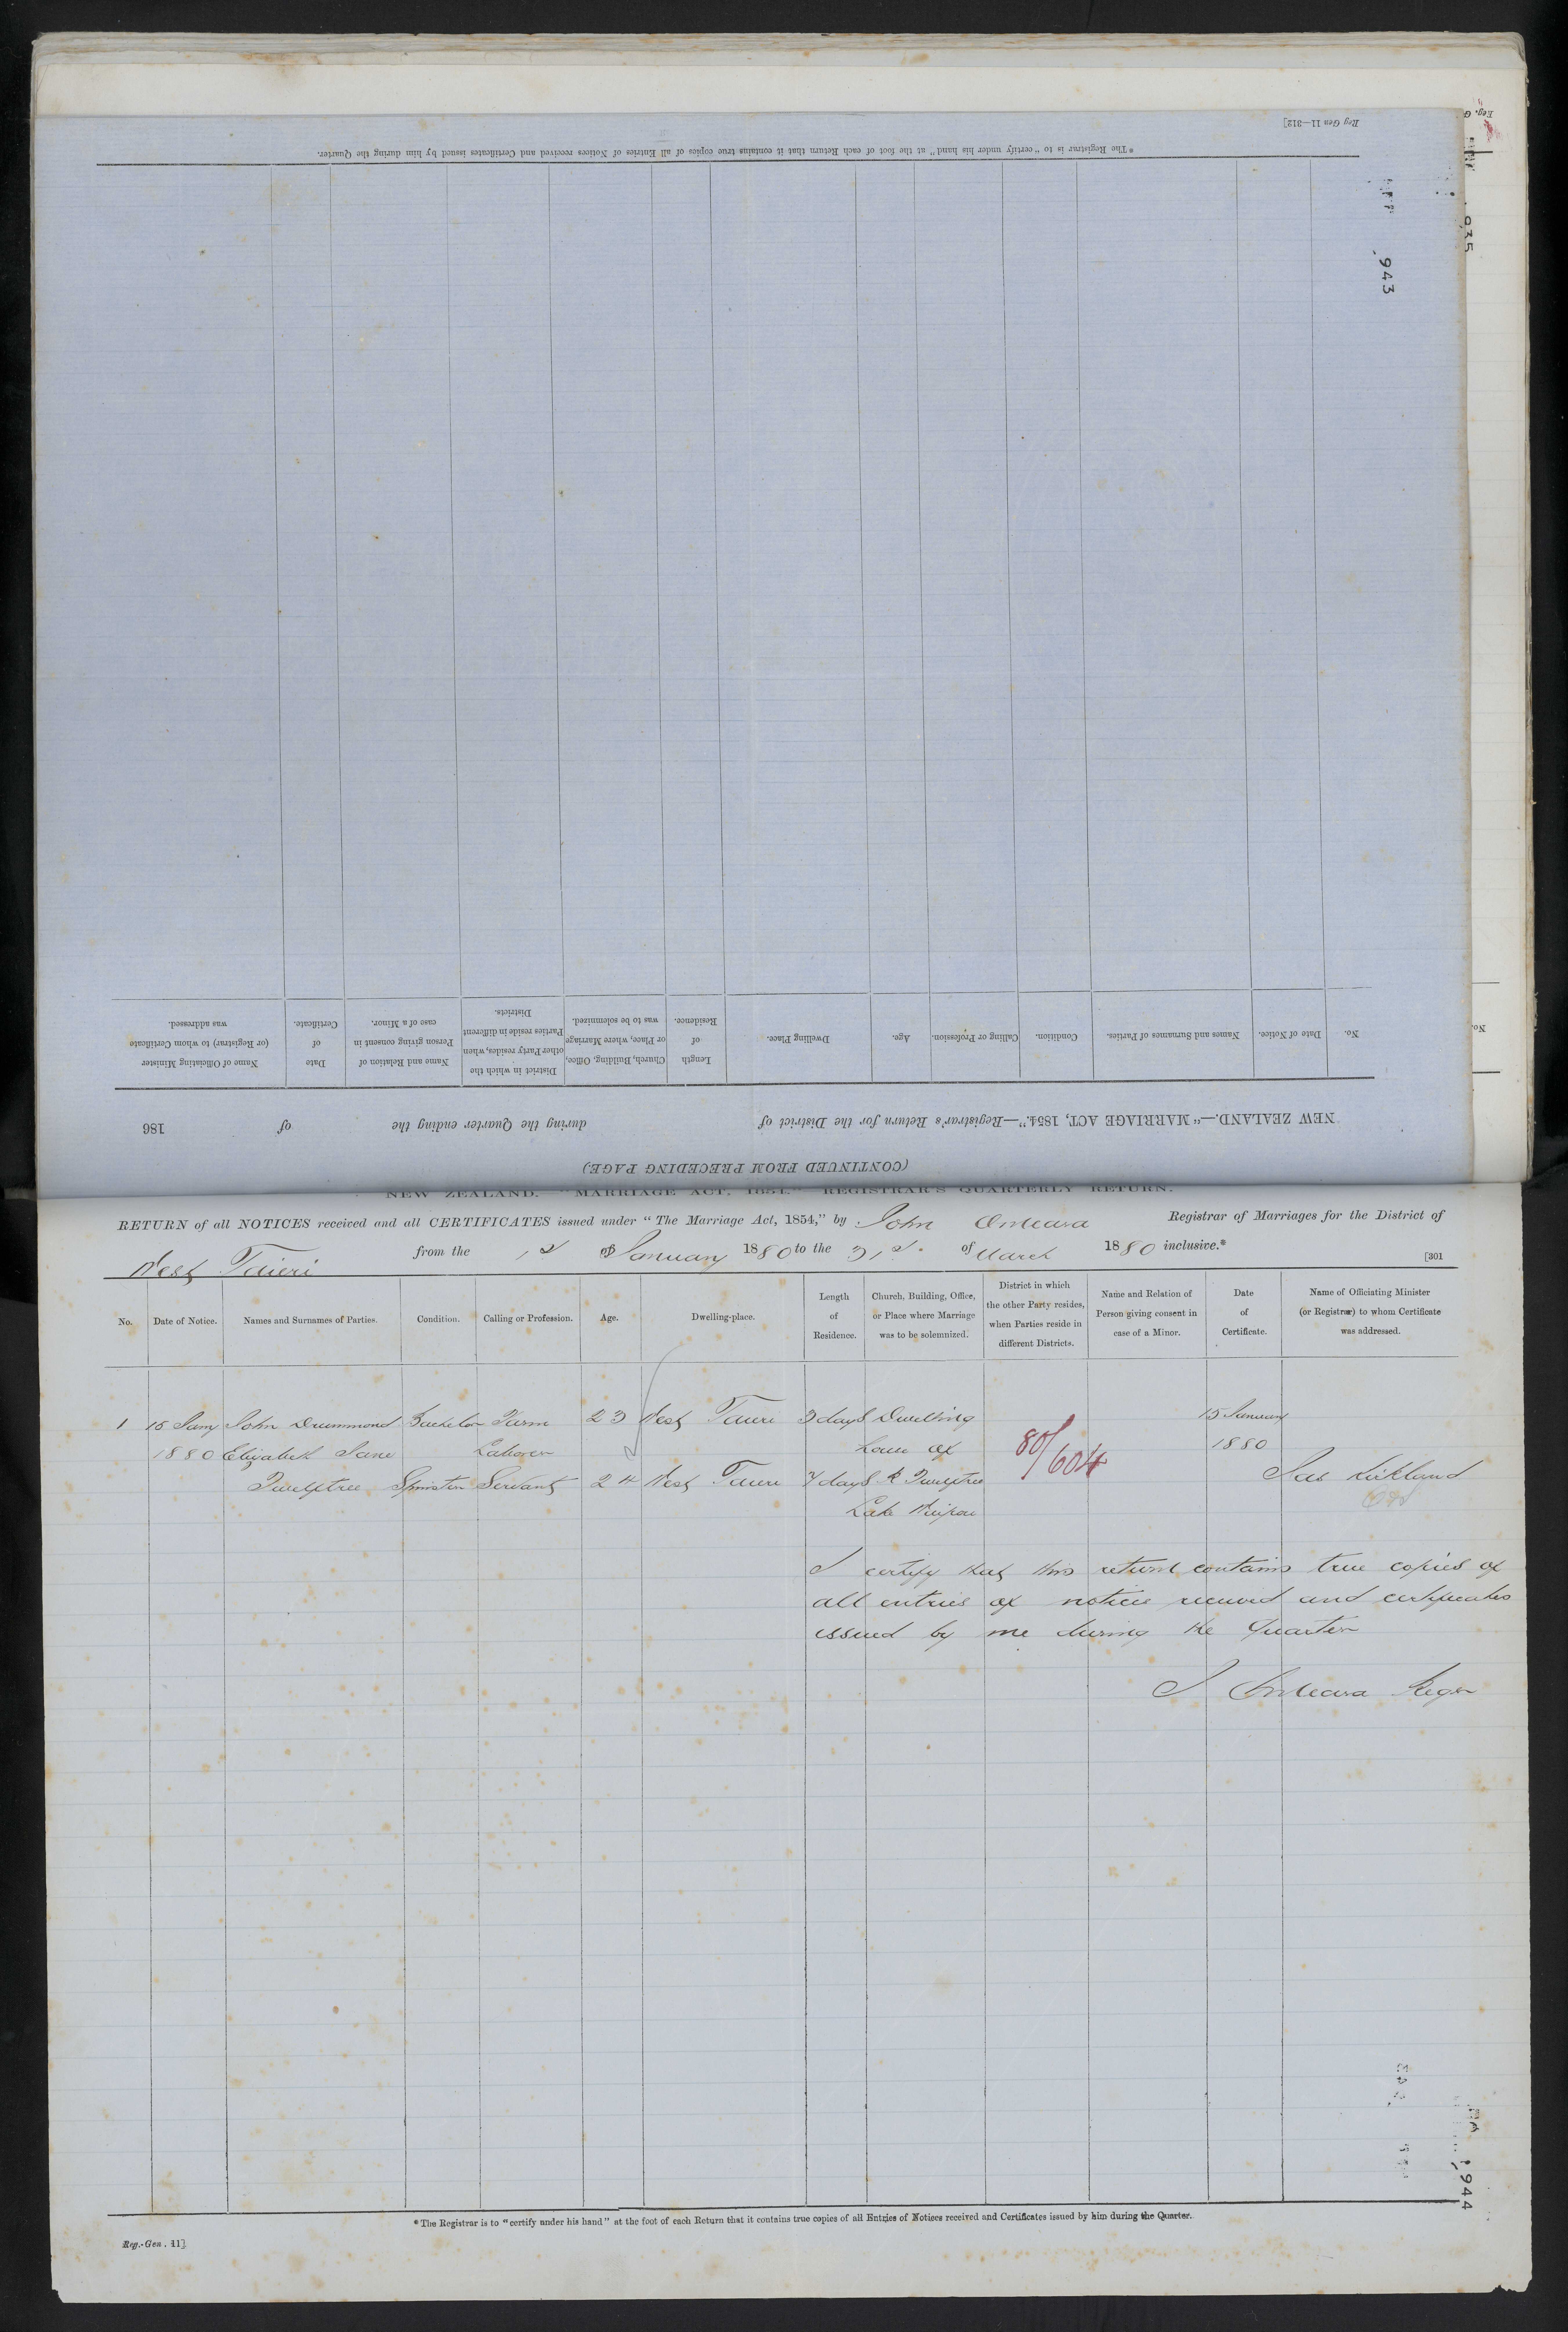 Reg Gen 11—312]
*The Registrar is to "certify under his hand" at the foot of each Return that it contains true copies of all Entries of Notices received and Certificates issued by him during the Quarter.
943
935
No. Date of Notice. Names and Surnames of Parties. Condition. Calling or Profession. Age. Dwelling Place. Length of Residence. Church, Building, Office, or Place, where Marriage was to be solemnized. District in which the other Party resides, when Parties reside in different Districts. Name and Relation of Person giving consent in case of a Minor. Date of Certificate. Name of Officiating Minister (or Registrar) to whom Certificate was addressed.
NEW ZEALAND.—"MARRIAGE ACT, 1854."—Registrar's Return for the District of during the Quarter ending the of 186
(CONTINUED FROM PRECEDING PAGE)
NEW ZEALAND. "MARRIAGE ACT, 1854." REGISTRAR'S QUARTERLY RETURN.
RETURN of all NOTICES received and all CERTIFICATES issued under "The Marriage Act, 1854," by John OMeara Registrar of Marriages for the District of
West Taieri from the 1st of January 1880 to the 31st of March 1880 inclusive.*
[301
No. Date of Notice. Names and Surnames of Parties. Condition. Calling or Profession. Age. Dwelling-place. Length of Residence. Church, Building, Office, or Place where Marriage was to be solemnized. District in which the other Party resides, when Parties reside in different Districts. Name and Relation of Person giving consent in case of a Minor. Date of Certificate. Name of Officiating Minister (or Registrar) to whom Certificate was addressed.
1 15 Jany John Drummond Bachelor Farm 23 West Taieri 3 days Dwelling 15 January
1880 Elizabeth Jane Laborer House of 80/604 1880
Twelftree Spinster Servant 24 West Taieri 7 days R Twelftree Jas Kirkland
Lake Waipori
I certify that this return contains true copies of
all entries of notices received and certificates
issued by me during the Quarter
J OMeara Regr
944
*The Registrar is to "certify under his hand" at the foot of each Return that it contains true copies of all Entries of Notices received and Certificates issued by him during the Quarter.
Reg.-Gen. 11]